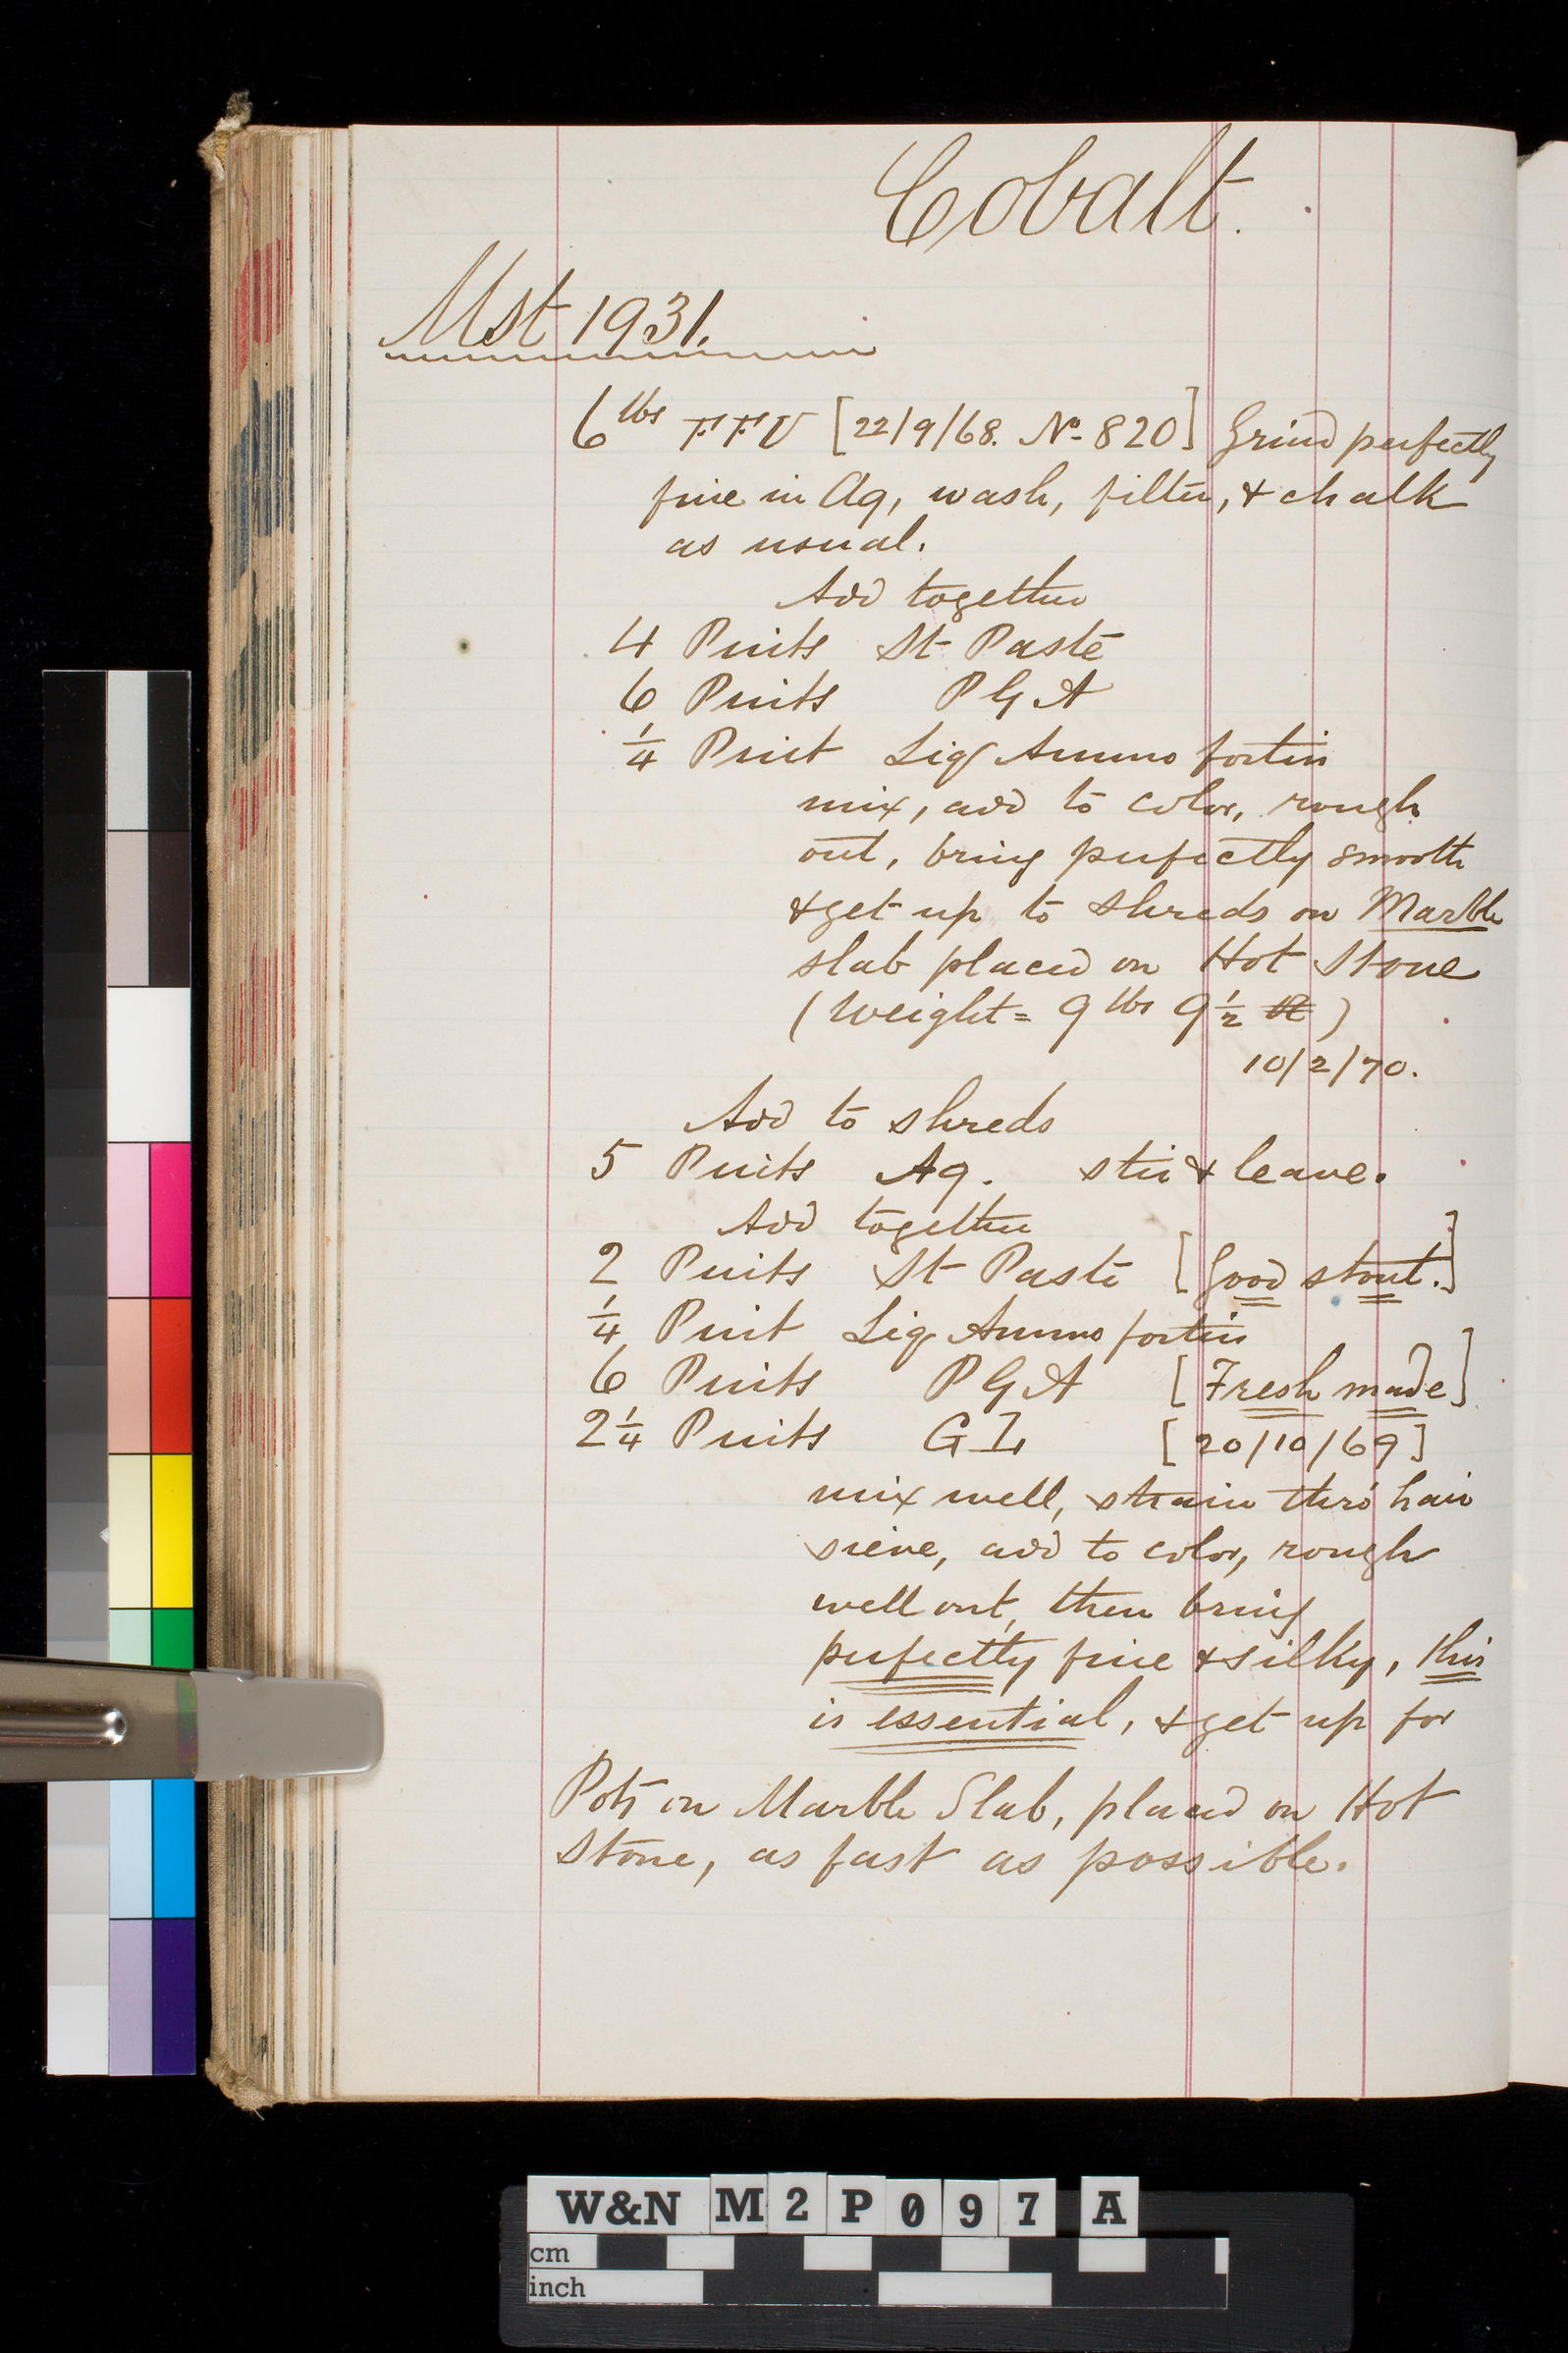 Cobalt.
Mst 1931.
6 lbs FFU [22/9/68. No 820] Grind perfectly
fine in Aq, wash, filter, & chalk
as usual.
Add together
4 Pints St Paste
6 Pints P G A
1/4 Pint Liq Ammo fortis
mix, add to color, rough
out, bring perfectly smooth
& get up to shreds on Marble
slab placed on Hot Stone
(Weight = 9 lbs 9 1/2 )
10/2/70.
Add to shreds
5 Pints Aq. stir & leave.
Add together
2 Pints St Paste [Good stout.]
1/4 Pint Liq Ammo fortis
6 Pints P G A [Fresh made]
2 1/4 Pints G I [20/10/69]
mix well, strain thro' hair
sieve, add to color, rough
well out, then bring
perfectly fine & silky, this
is essential, & get up for
Pots on Marble Slab, placed on Hot
Stone, as fast as possible.
W&N M2P097 A
cm
inch